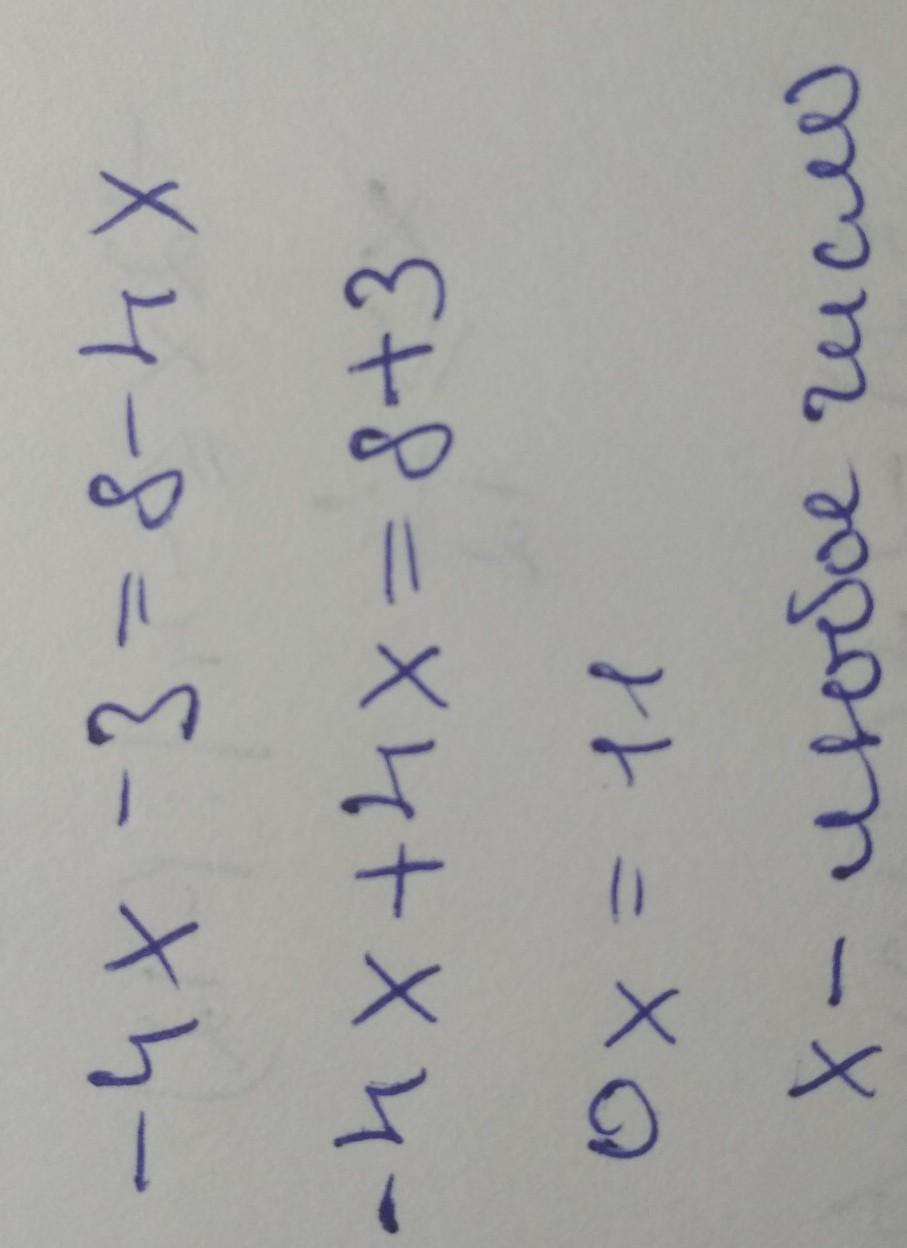 -4x - 3 = 8 - 4x
-4x + 4x = 8 + 3
0x = 11
x - любое число